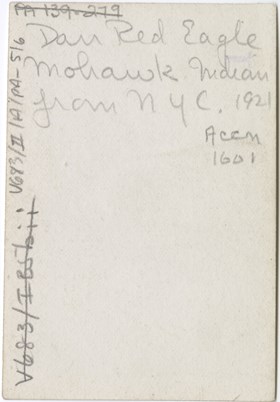 PA 139-279
Dan Red Eagle
Mohawk Indian
from NYC. 1921
Accn
1601
V683/II/A1/PA-516